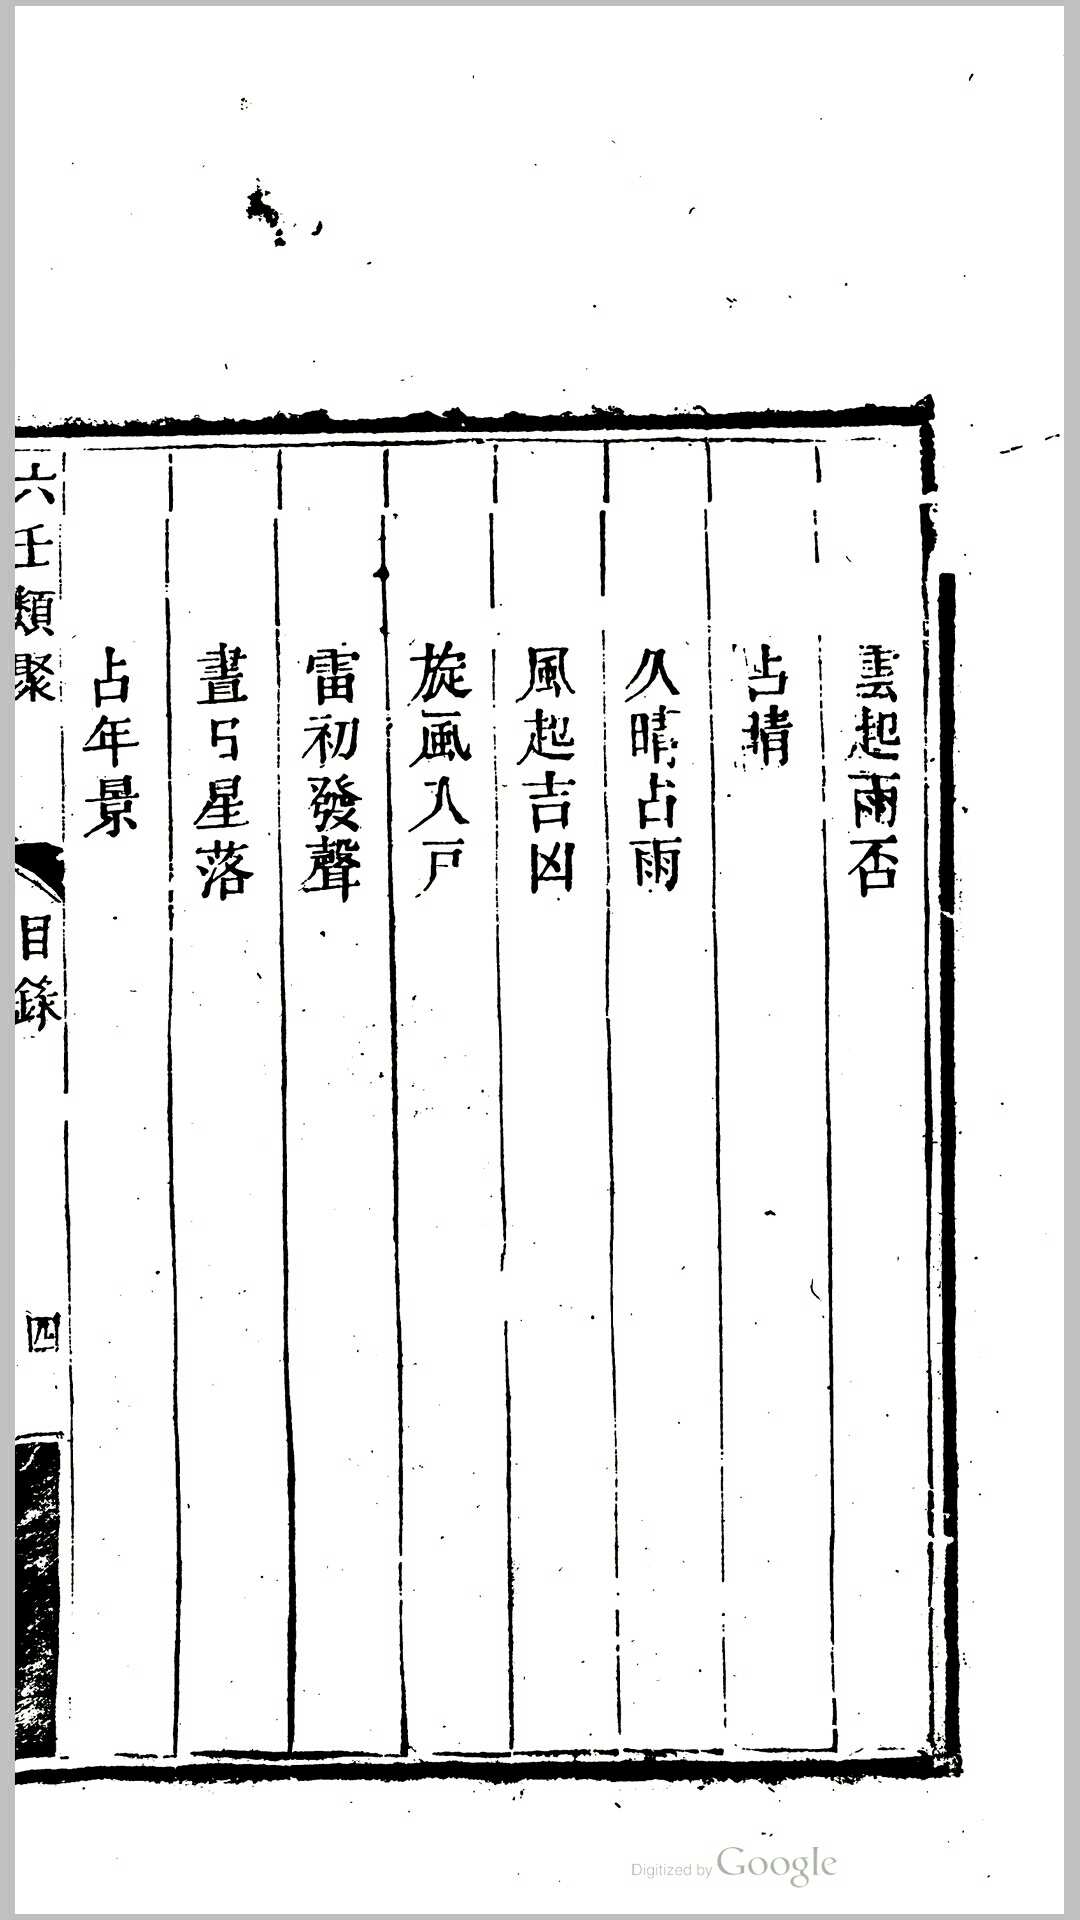 雲起雨否
占晴
久晴占雨
風起吉凶
旋風入戸
雷初發聲
晝日星落
占年景
六壬類聚
目錄
四
Digitized by Google